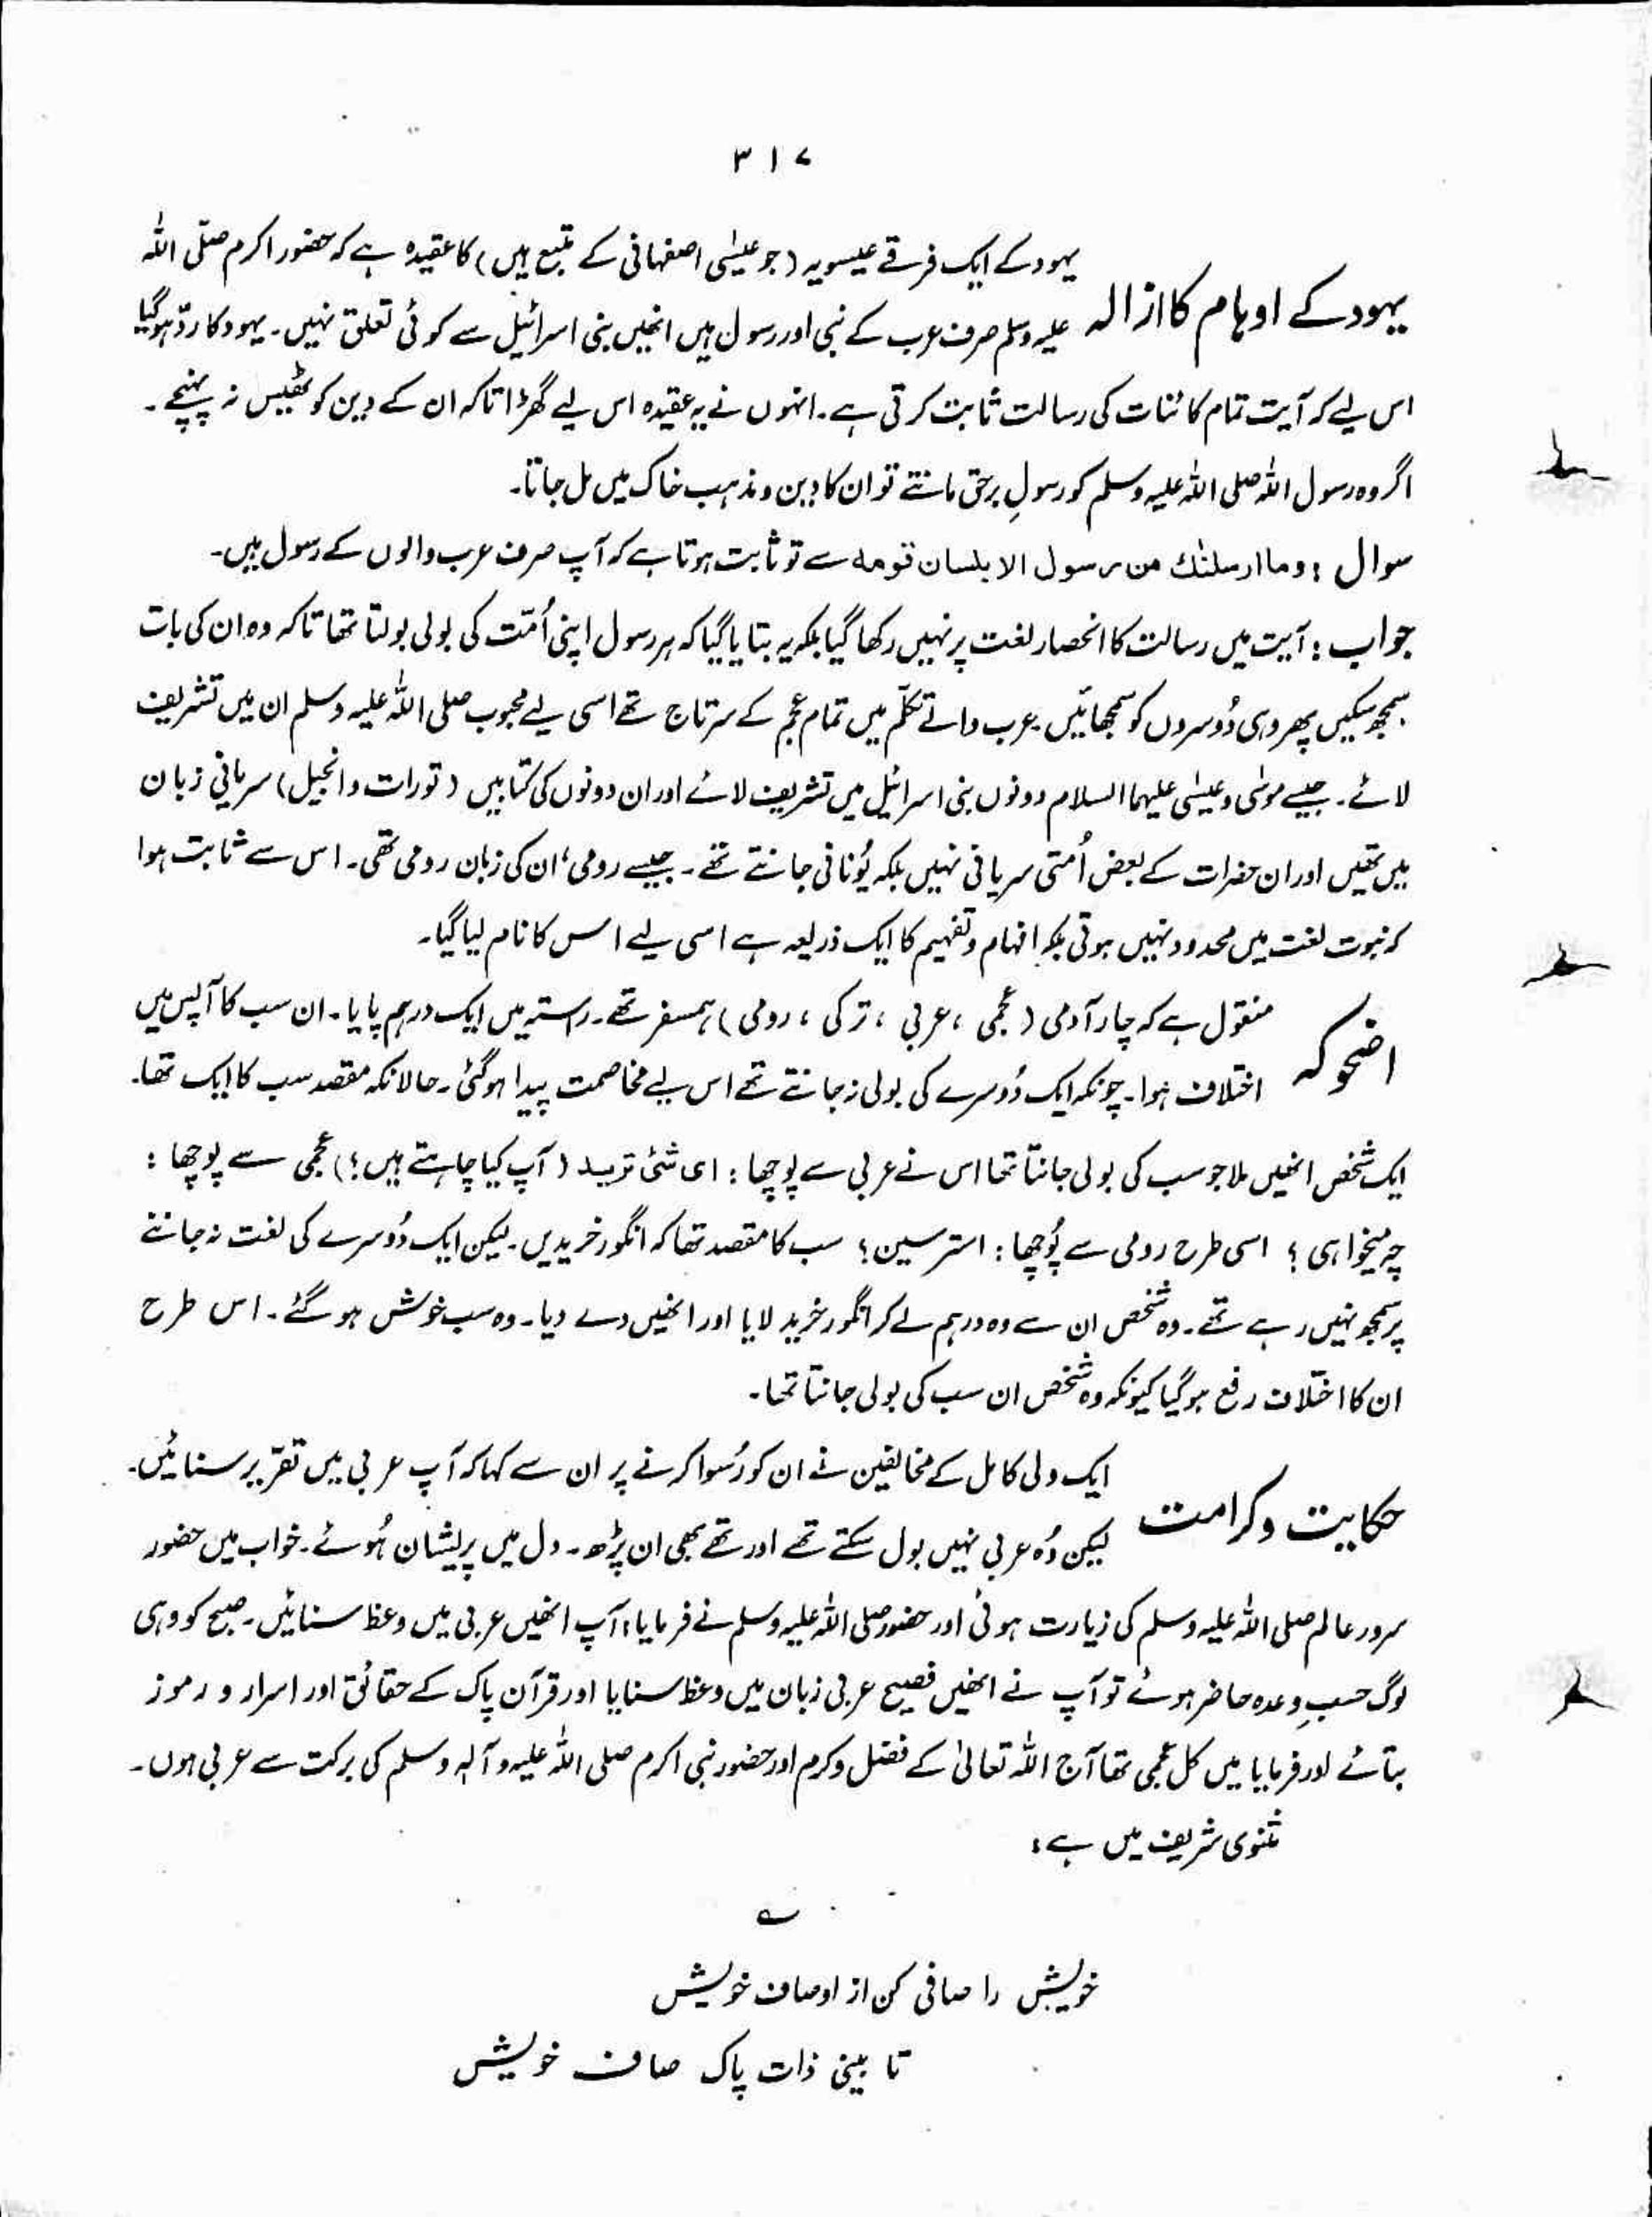 ۳۱۷
یہود کے اوہام کا ازالہ
یہود کے ایک فرقے عیسویہ (جو عیسٰی اصفہانی کے متبع ہیں) کا عقیدہ ہے کہ حضور اکرم صلّی اللہ
علیہ وسلم صرف عرب کے نبی اور رسول ہیں انھیں بنی اسرائیل سے کوئی تعلق نہیں۔ یہود کا ردّ ہوگیا
اس لیے کہ آیت تمام کائنات کی رسالت ثابت کرتی ہے۔ انہوں نے یہ عقیدہ اس لیے گھڑا تاکہ ان کے دین کو ٹھیس نہ پہنچے۔
اگر وہ رسول اللہ صلی اللہ علیہ وسلم کو رسولِ برحق مانتے تو ان کا دین و مذہب خاک میں مل جاتا۔
سوال : وما ارسلنٰك من رسول الا بلسان قومہ سے تو ثابت ہوتا ہے کہ آپ صرف عرب والوں کے رسول ہیں۔
جواب : آیت میں رسالت کا انحصار لغت پر نہیں رکھا گیا بلکہ یہ بتایا گیا کہ ہر رسول اپنی اُمّت کی بولی بولتا تھا تاکہ وہ ان کی بات
سمجھ سکیں پھر وہی دُوسروں کو سمجھائیں۔ عرب والے تکلّم میں تمام عجم کے سرتاج تھے اسی لیے محبوب صلی اللہ علیہ وسلم ان میں تشریف
لائے۔ جیسے موسٰی و عیسٰی علیہما السلام دونوں بنی اسرائیل میں تشریف لائے اور ان دونوں کی کتابیں (تورات و انجیل) سریانی زبان
میں تھیں اور ان حضرات کے بعض اُمتی سریانی نہیں بلکہ یُونانی جانتے تھے۔ جیسے رومی، ان کی زبان رومی تھی۔ اس سے ثابت ہوا
کہ نبوت لغت میں محدود نہیں ہوتی بلکہ افہام و تفہیم کا ایک ذریعہ ہے اسی لیے اس کا نام لیا گیا۔
اضحوکہ
منقول ہے کہ چار آدمی (عجمی ، عربی ، ترکی ، رومی) ہمسفر تھے۔ راستہ میں ایک درہم پایا۔ ان سب کا آپس میں
اختلاف ہوا۔ چونکہ ایک دُوسرے کی بولی نہ جانتے تھے اس لیے مخاصمت پیدا ہوگئی۔ حالانکہ مقصد سب کا ایک تھا۔
ایک شخص انھیں ملا جو سب کی بولی جانتا تھا اس نے عربی سے پوچھا : ای شئ ترید (آپ کیا چاہتے ہیں؟) عجمی سے پوچھا :
چہ میخواہی ؟ اسی طرح رومی سے پُوچھا : استرسین ؟ سب کا مقصد تھا کہ انگور خریدیں۔ لیکن ایک دُوسرے کی لغت نہ جاننے
پر سمجھ نہیں رہے تھے۔ وہ شخص ان سے وہ درہم لے کر انگور خرید لایا اور انھیں دے دیا۔ وہ سب خوش ہو گئے۔ اس طرح
ان کا اختلاف رفع ہوگیا کیونکہ وہ شخص ان سب کی بولی جانتا تھا۔
حکایت و کرامت
ایک ولی کامل کے مخالفین نے ان کو رُسوا کرنے پر ان سے کہا کہ آپ عربی میں تقریر سنائیں۔
لیکن وُہ عربی نہیں بول سکتے تھے اور تھے بھی ان پڑھ۔ دل میں پریشان ہُوئے۔ خواب میں حضور
سرور عالم صلی اللہ علیہ وسلم کی زیارت ہوئی اور حضور صلی اللہ علیہ وسلم نے فرمایا، آپ انھیں عربی میں وعظ سنائیں۔ صبح کو وہی
لوگ حسبِ وعدہ حاضر ہوئے تو آپ نے انھیں فصیح عربی زبان میں وعظ سنایا اور قرآن پاک کے حقائق اور اسرار و رموز
بتائے اور فرمایا میں کل عجمی تھا آج اللہ تعالیٰ کے فضل و کرم اور حضور نبی اکرم صلی اللہ علیہ و آلہ وسلم کی برکت سے عربی ہوں۔
مثنوی شریف میں ہے :
؎
خویش را صافی کن از اوصاف خویش
تا ببینی ذات پاک صاف خویش